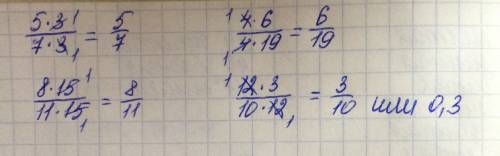 5·3/7·3 = 5/7    4·6/4·19 = 6/19
8·15/11·15 = 8/11    12·3/10·12 = 3/10 или 0,3